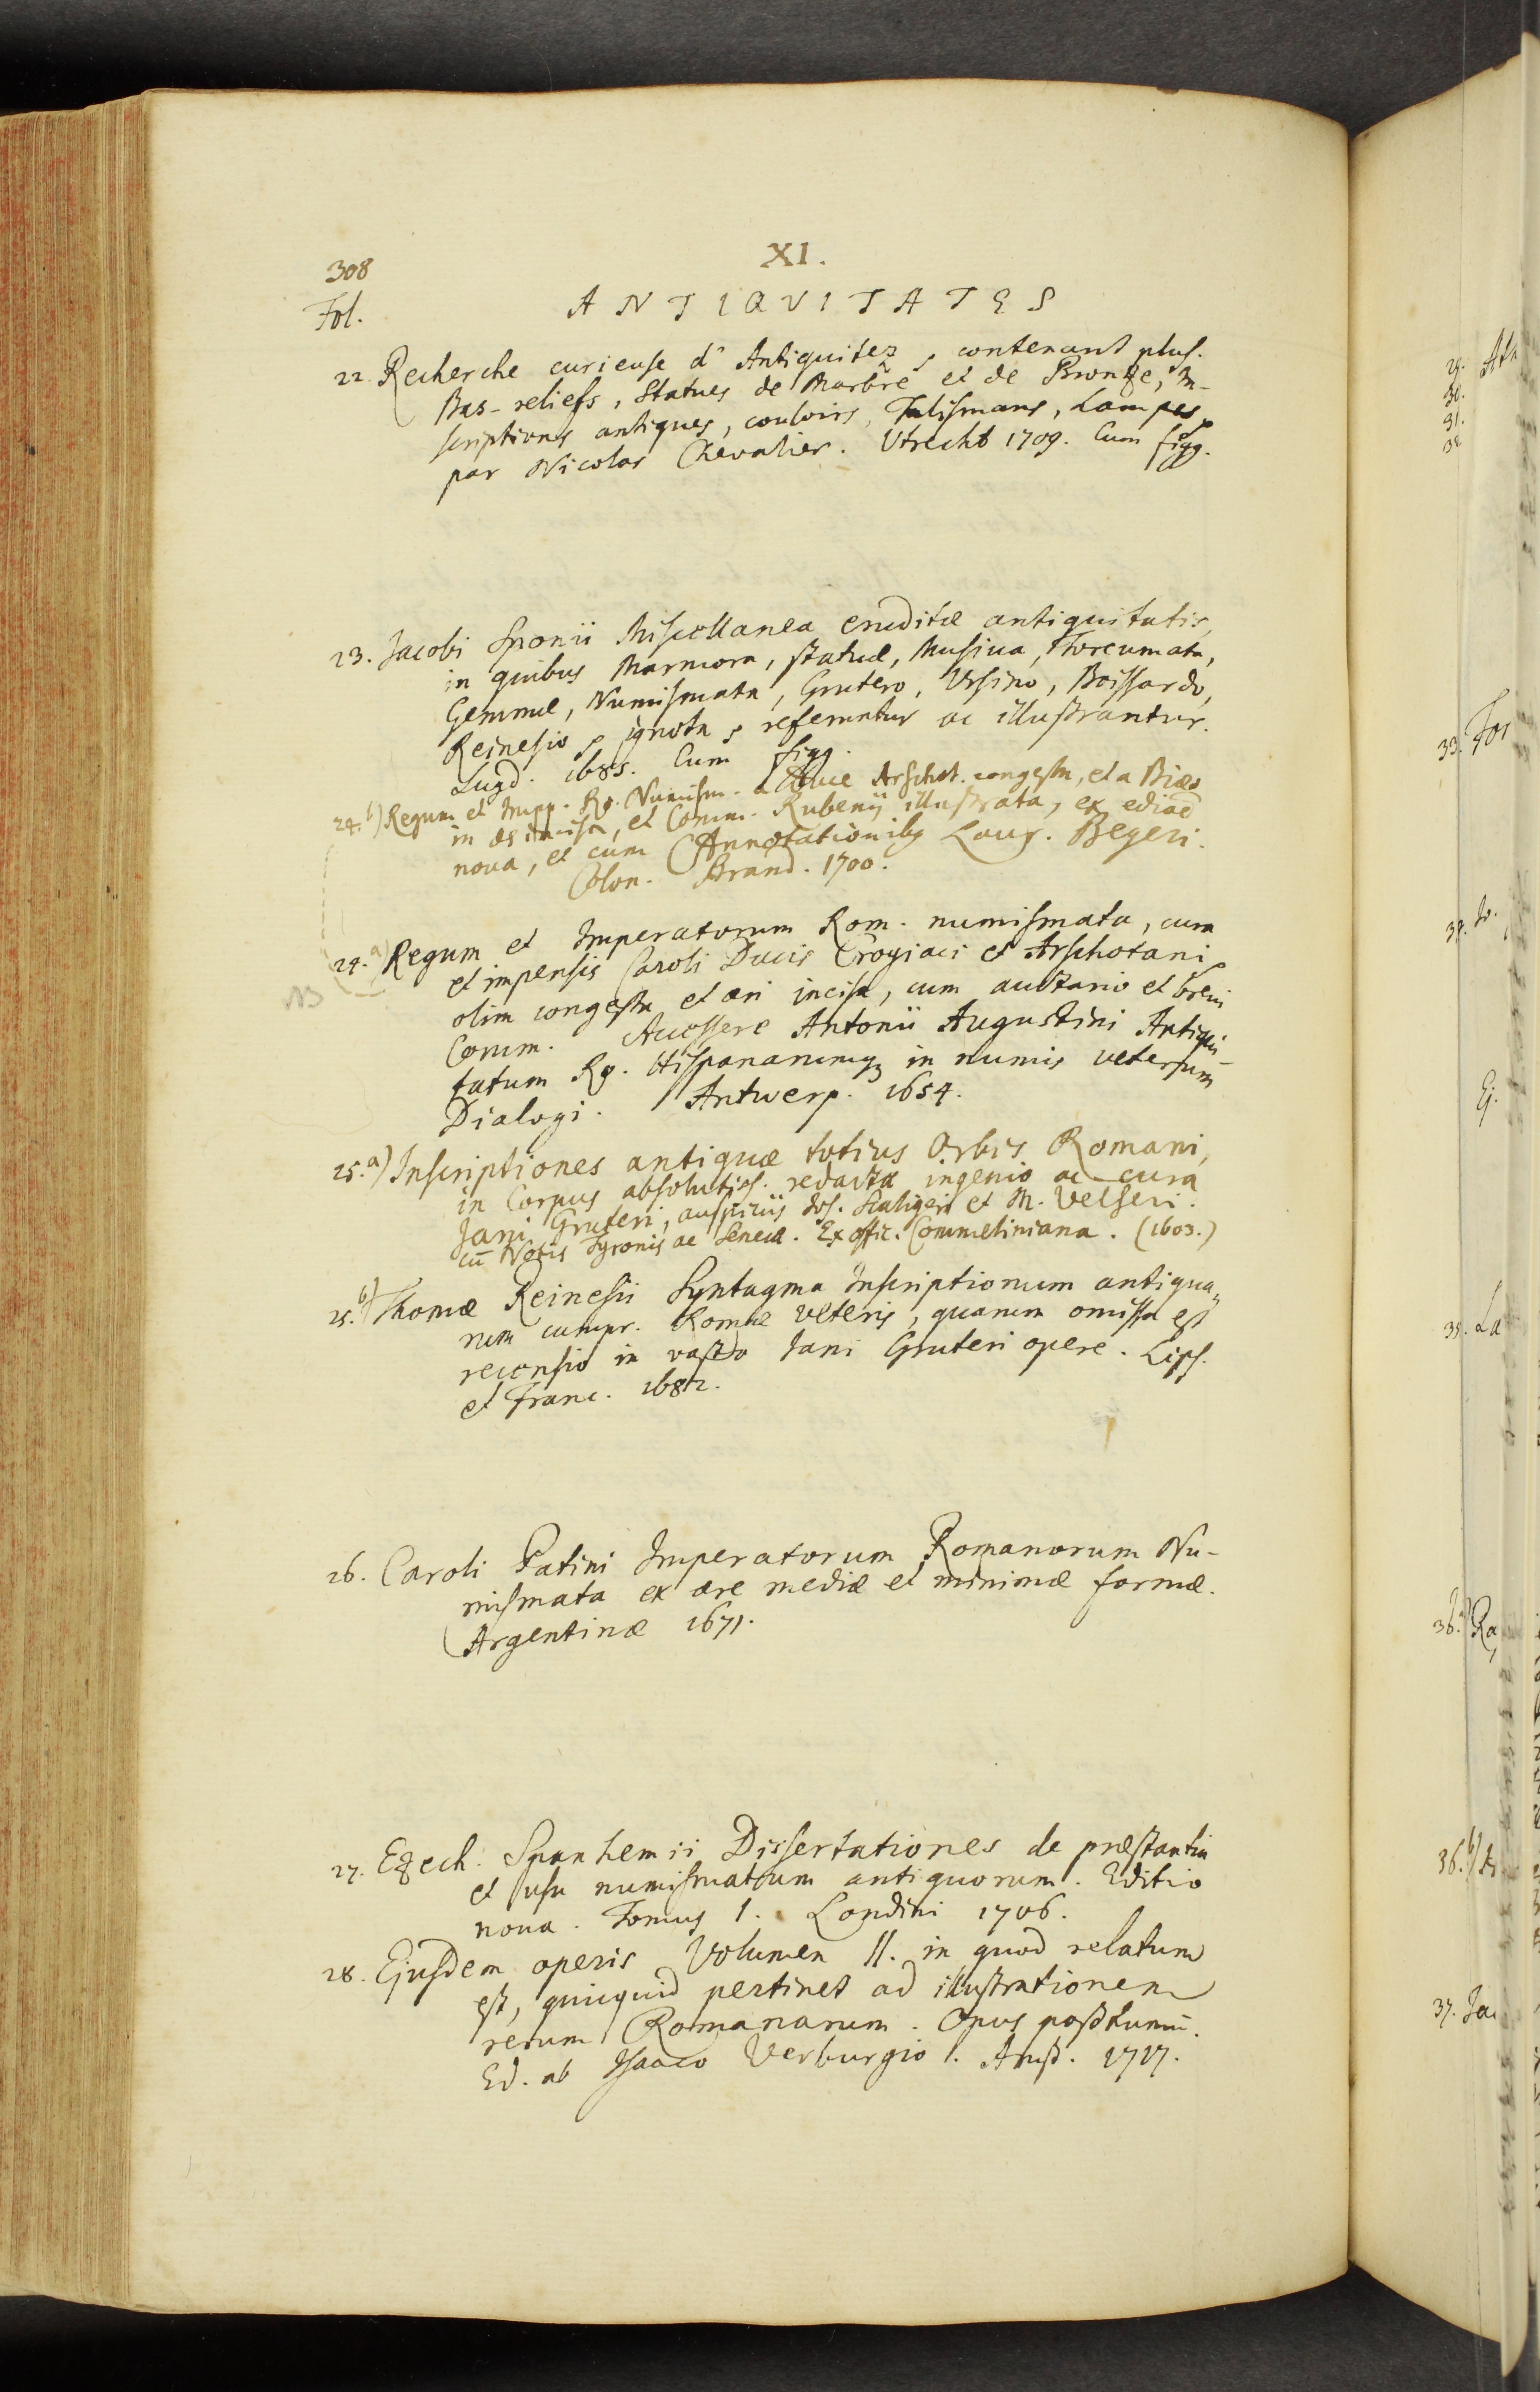 308
XI.
Fol.
ANTIQVITATES
22. Recherche curieuse d'Antiquitez, contenant plus.
Bas-reliefs, Statues de Marbre et de Bronze, In-
scriptions antiques, couloirs, Talismans, Lampes,
par Nicolas Chevalier. Utrecht 1709. Cum figg.
23. Jacobi Sponii Miscellanea eruditæ antiquitatis,
in quibus Marmora, statuæ, Musiva, Toreumata,
Gemmæ, Numismata, Grutero, Ursino, Boissardo,
Reinesio, ignota, referuntur ac illustrantur.
Lugd. 1685. Cum figg.
24. b) Regum et Impp. Ro. Numism. a Duce Arschot. congesta, et a Biæo
in æs incisa, et Comm. Rubenij illustrata, ex ediōe
nova, et cum Annotationibꝫ Laur. Begeri.
Colon. Brand. 1700.
24. a) Regum et Imperatorum Rom. numismata, cura
NB
et impensis Caroli Ducis Croyiaci et Arschotani
olim congesta et æri incisa, cum auctario et brevi
Comm. Accessere Antonii Augustini Antiqui-
tatum Ro. Hispanarumqꝫ in numis veterum
Dialogi. Antwerp. 1654.
25. a) Inscriptiones antiquæ totius Orbis Romani,
in Corpus absolutiss. redactæ ingenio ac cura
Jani Gruteri, auspiciis Jos. Scaligeri et M. Velseri.
cū Notis Tyronis ac Senecæ. Ex offic. Commeliniana. (1603.)
25. b) Thomæ Reinesii Syntagma Inscriptionum antiqua-
rum cumpr. Romæ veteris, quarum omissa est
recensio in vasto Jani Gruteri opere. Lips.
et Franc. 1682.
26. Caroli Patini Imperatorum Romanorum Nu-
mismata ex ære mediæ et minimæ formæ.
Argentinæ 1671.
27. Ezech. Spanhemii Dissertationes de præstantia
et usu numismatum antiquorum. Editio
nova. Tomus I. Londini 1706.
28. Ejusdem operis Volumen II. in quod relatum
est, quicquid pertinet ad illustrationem
rerum Romanarum. Opus posthumū.
Ed. ab Isaaco Verburgio. Amst. 1717.
29.
30.
31.
32.
33. For
34. Jo.
Ej.
35. La
36. a) Ra
36. b)
37. Ja